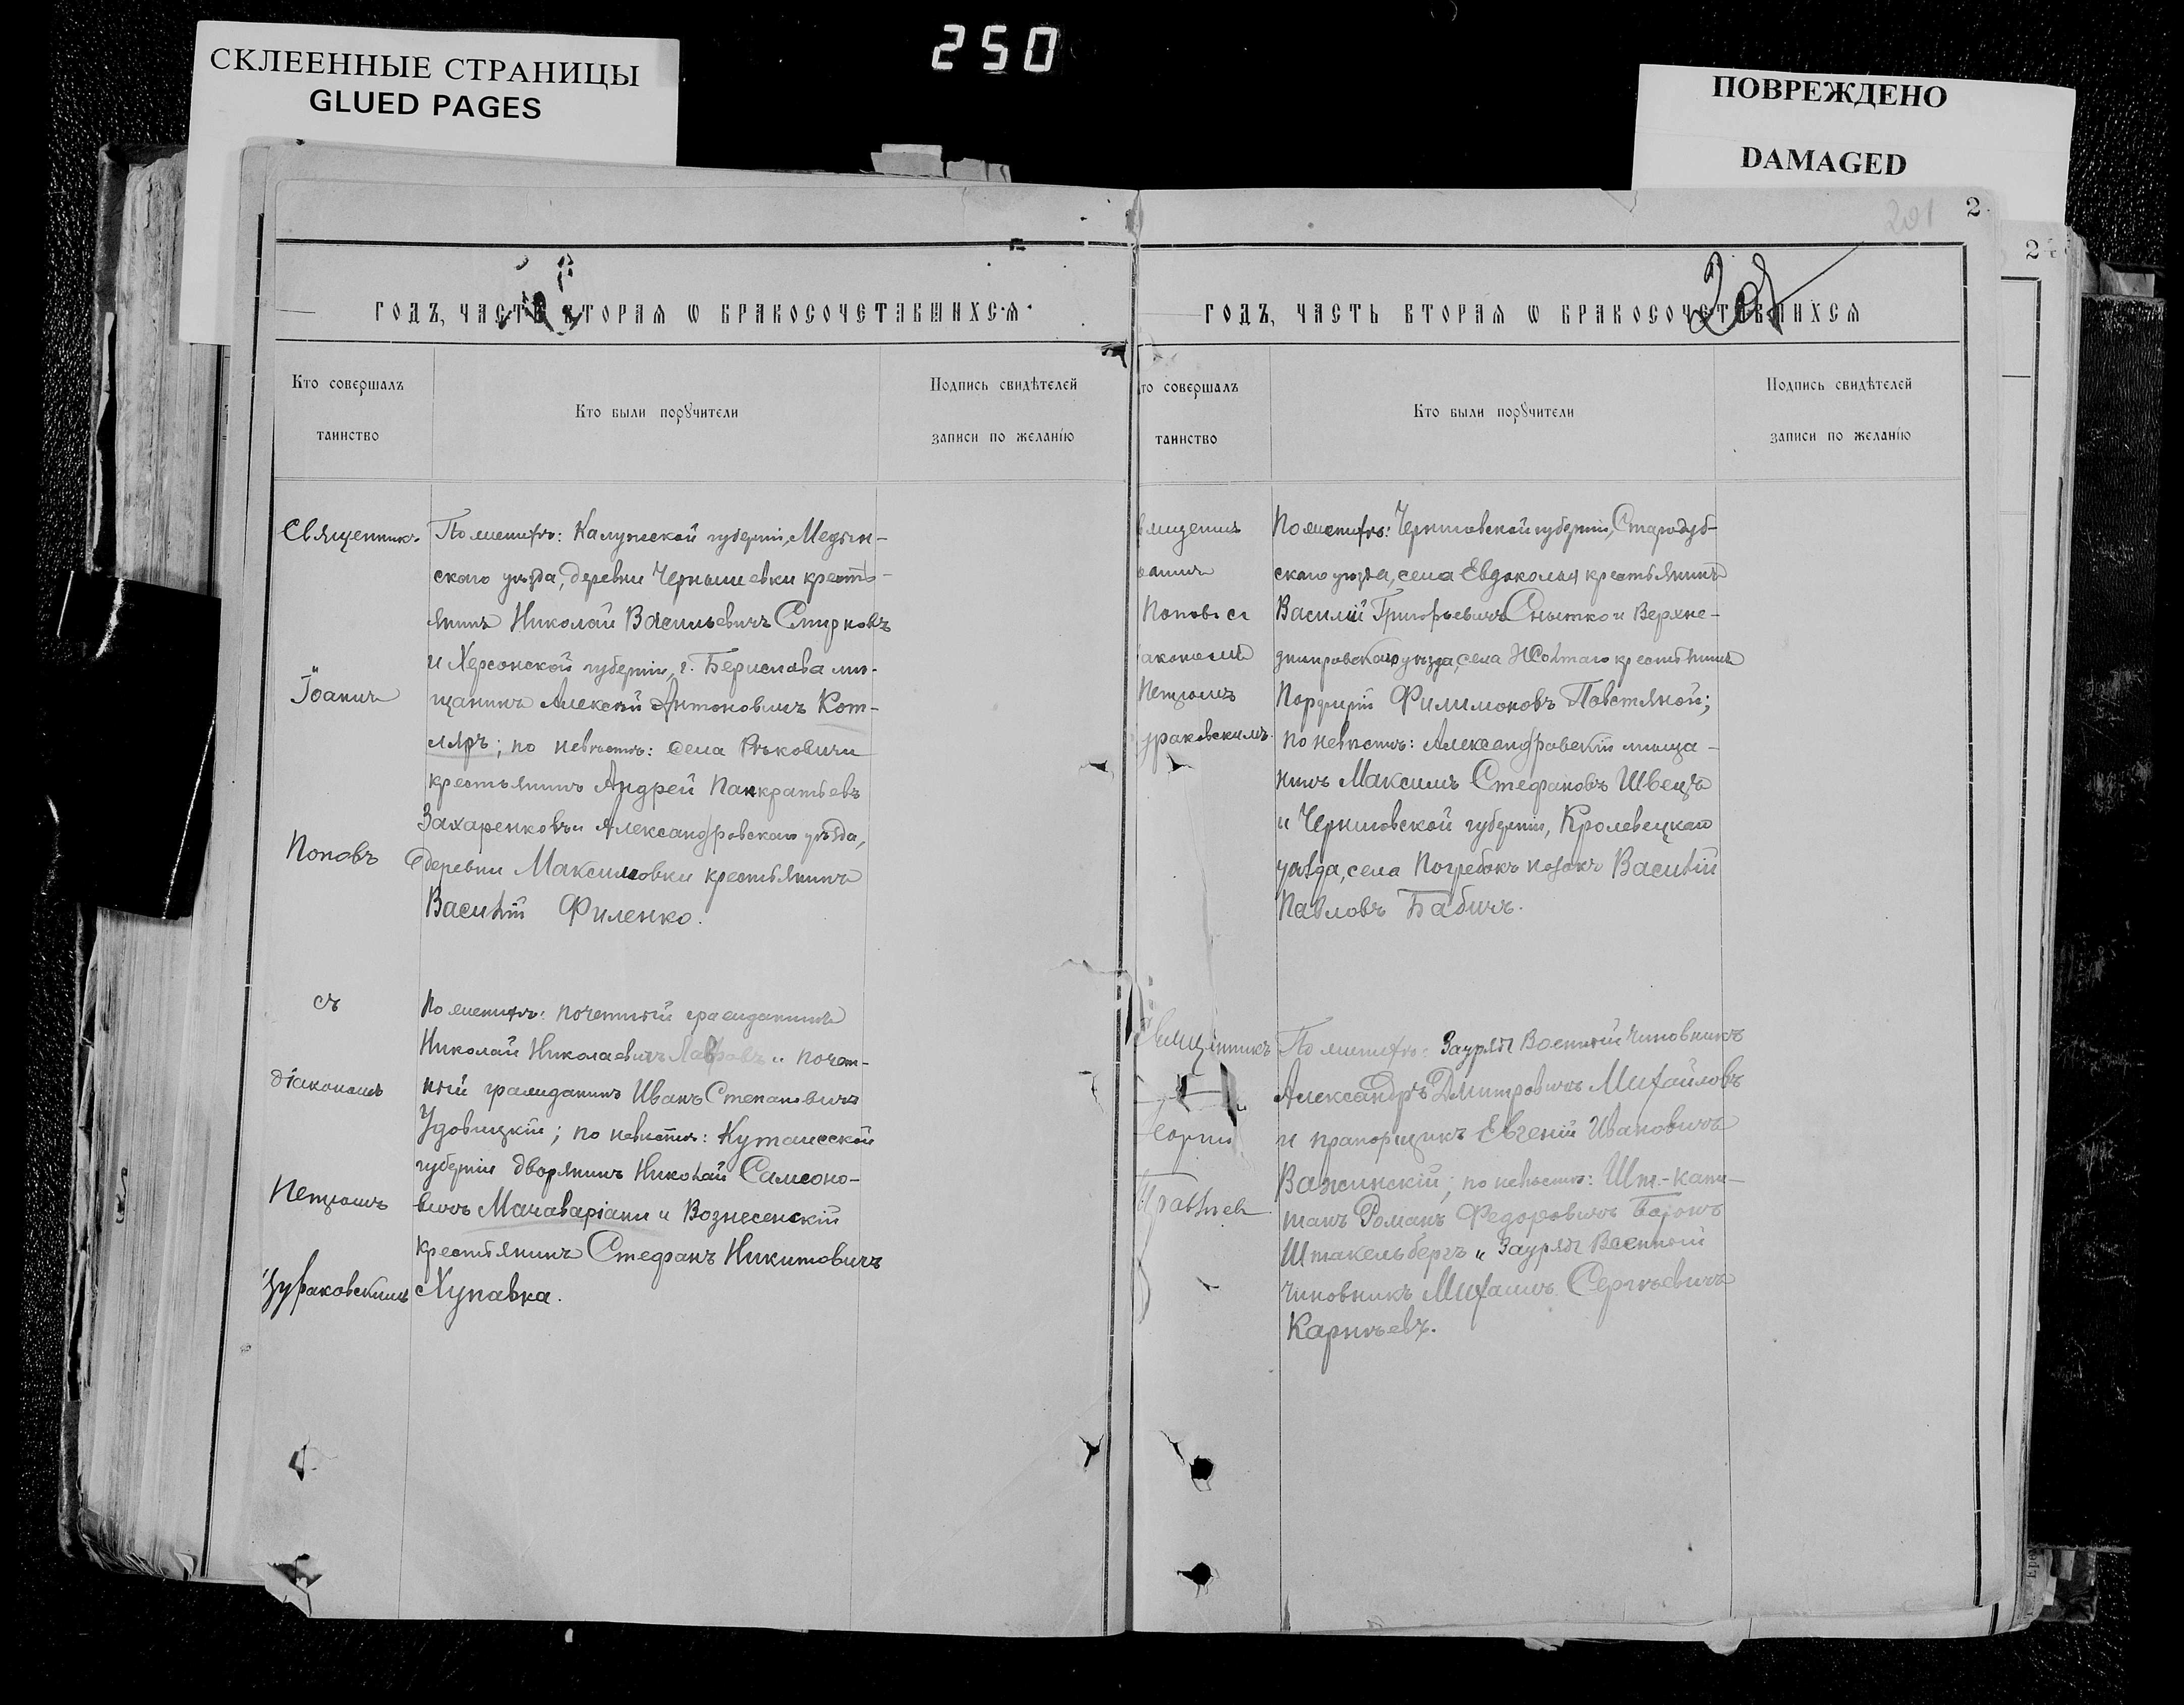 250
СКЛЕЕННЫЕ СТРАНИЦЫ
GLUED PAGES
ПОВРЕЖДЕНО
DAMAGED
ГОДЪ, ЧАСТЬ ВТОРАЯ Ѡ БРАКОСОЧЕТАВШИХСЯ
Кто совершалъ
таинство
Кто были порꙋчители
Подпись свидѣтелей
записи по желанію
Священникъ
Іоаннъ
Поповъ
По женихѣ: Калужской губерніи, Медын-
скаго уѣзда, деревни Чернышевки кресть-
янинъ Николай Васильевичъ Смирновъ
и Херсонской губерніи, г. Берислава мѣ-
щанинъ Алексѣй Антоновичъ Кот-
ляръ; по невѣстѣ: села
крестьянинъ Андрей Панкратьевъ
Захаренковъ и Александровскаго уѣзда,
деревни Максимовки крестьянинъ
Василій Филенко.
съ
діакономъ
Петромъ
Цураковскимъ
По женихѣ: почетный гражданинъ
Николай Николаевичъ и почет-
ный гражданинъ Иванъ Степановичъ
Удовицкій; по невѣстѣ: Кутаисской
губерніи дворянинъ Николай Самсоно-
вичъ Мачаваріани и Вознесенскій
крестьянинъ Стефанъ Никитовичъ
Хупавка.
201
2
201
ГОДЪ, ЧАСТЬ ВТОРАЯ Ѡ БРАКОСОЧЕТАВШИХСЯ
то совершалъ
таинство
Кто были порꙋчители
Подпись свидѣтелей
записи по желанію
Поповъ съ
іакономъ
Петромъ
ураковскимъ
По женихѣ: Черниговской губерніи, Стародуб-
скаго уѣзда, села Евдоколья крестьянинъ
Василій Григорьевичъ Снытко и Верхне-
днѣпровскаго уѣзда, села Жолтаго крестьянинъ
Порфирій Филимоновъ Повстяной;
по невѣстѣ: Александровскій мѣща-
нинъ Максимъ Стефановъ Швецъ
и Черниговской губерніи, Кролевецкаго
уѣзда, села Погребокъ козакъ Василій
Павловъ Бабичъ.
Священникъ
Георгій
По женихѣ: Заурядъ Военный чиновникъ
Александръ Дмитровичъ Михайловъ
и прапорщикъ Евгеній Ивановичъ
Важинскій; по невѣстѣ: Шт.-капи-
танъ Романъ Федоровичъ Баронъ
Штакельбергъ и Заурядъ Военный
чиновникъ Михаилъ Сергѣевичъ
Карнѣевъ.